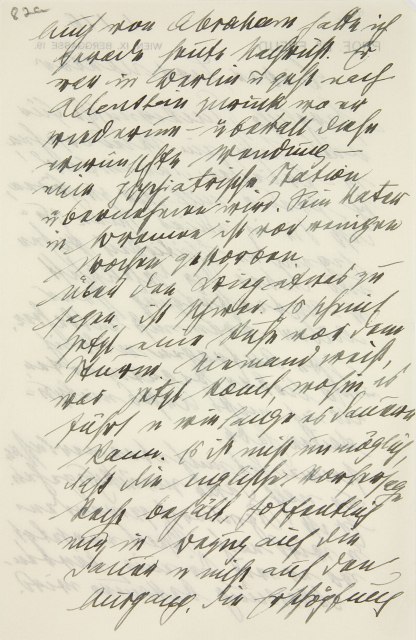 82a
Auch von Abraham hatte ich
gerade heute Nachricht. Er
war in Berlin u geht nach
Allenstein zurück wo er
wiederum – überall diese
erwünschte Wendung –
eine psychiatrische Station
übernehmen wird. Sein Vater
in Bremen ist vor einigen
Wochen gestorben.
Über den Krieg etwas zu
sagen ist schwer. Es scheint
jetzt eine Ruhe vor dem
Sturm. Niemand weiß,
was jetzt kommt, wohin es
führt u wie lange es dauern
kann. Es ist nicht unmöglich,
daß die englische Vorhersage
Recht behält, hoffentlich
nur in Bezug auf die
Dauer u nicht auf den
Ausgang. Die Erschöpfung